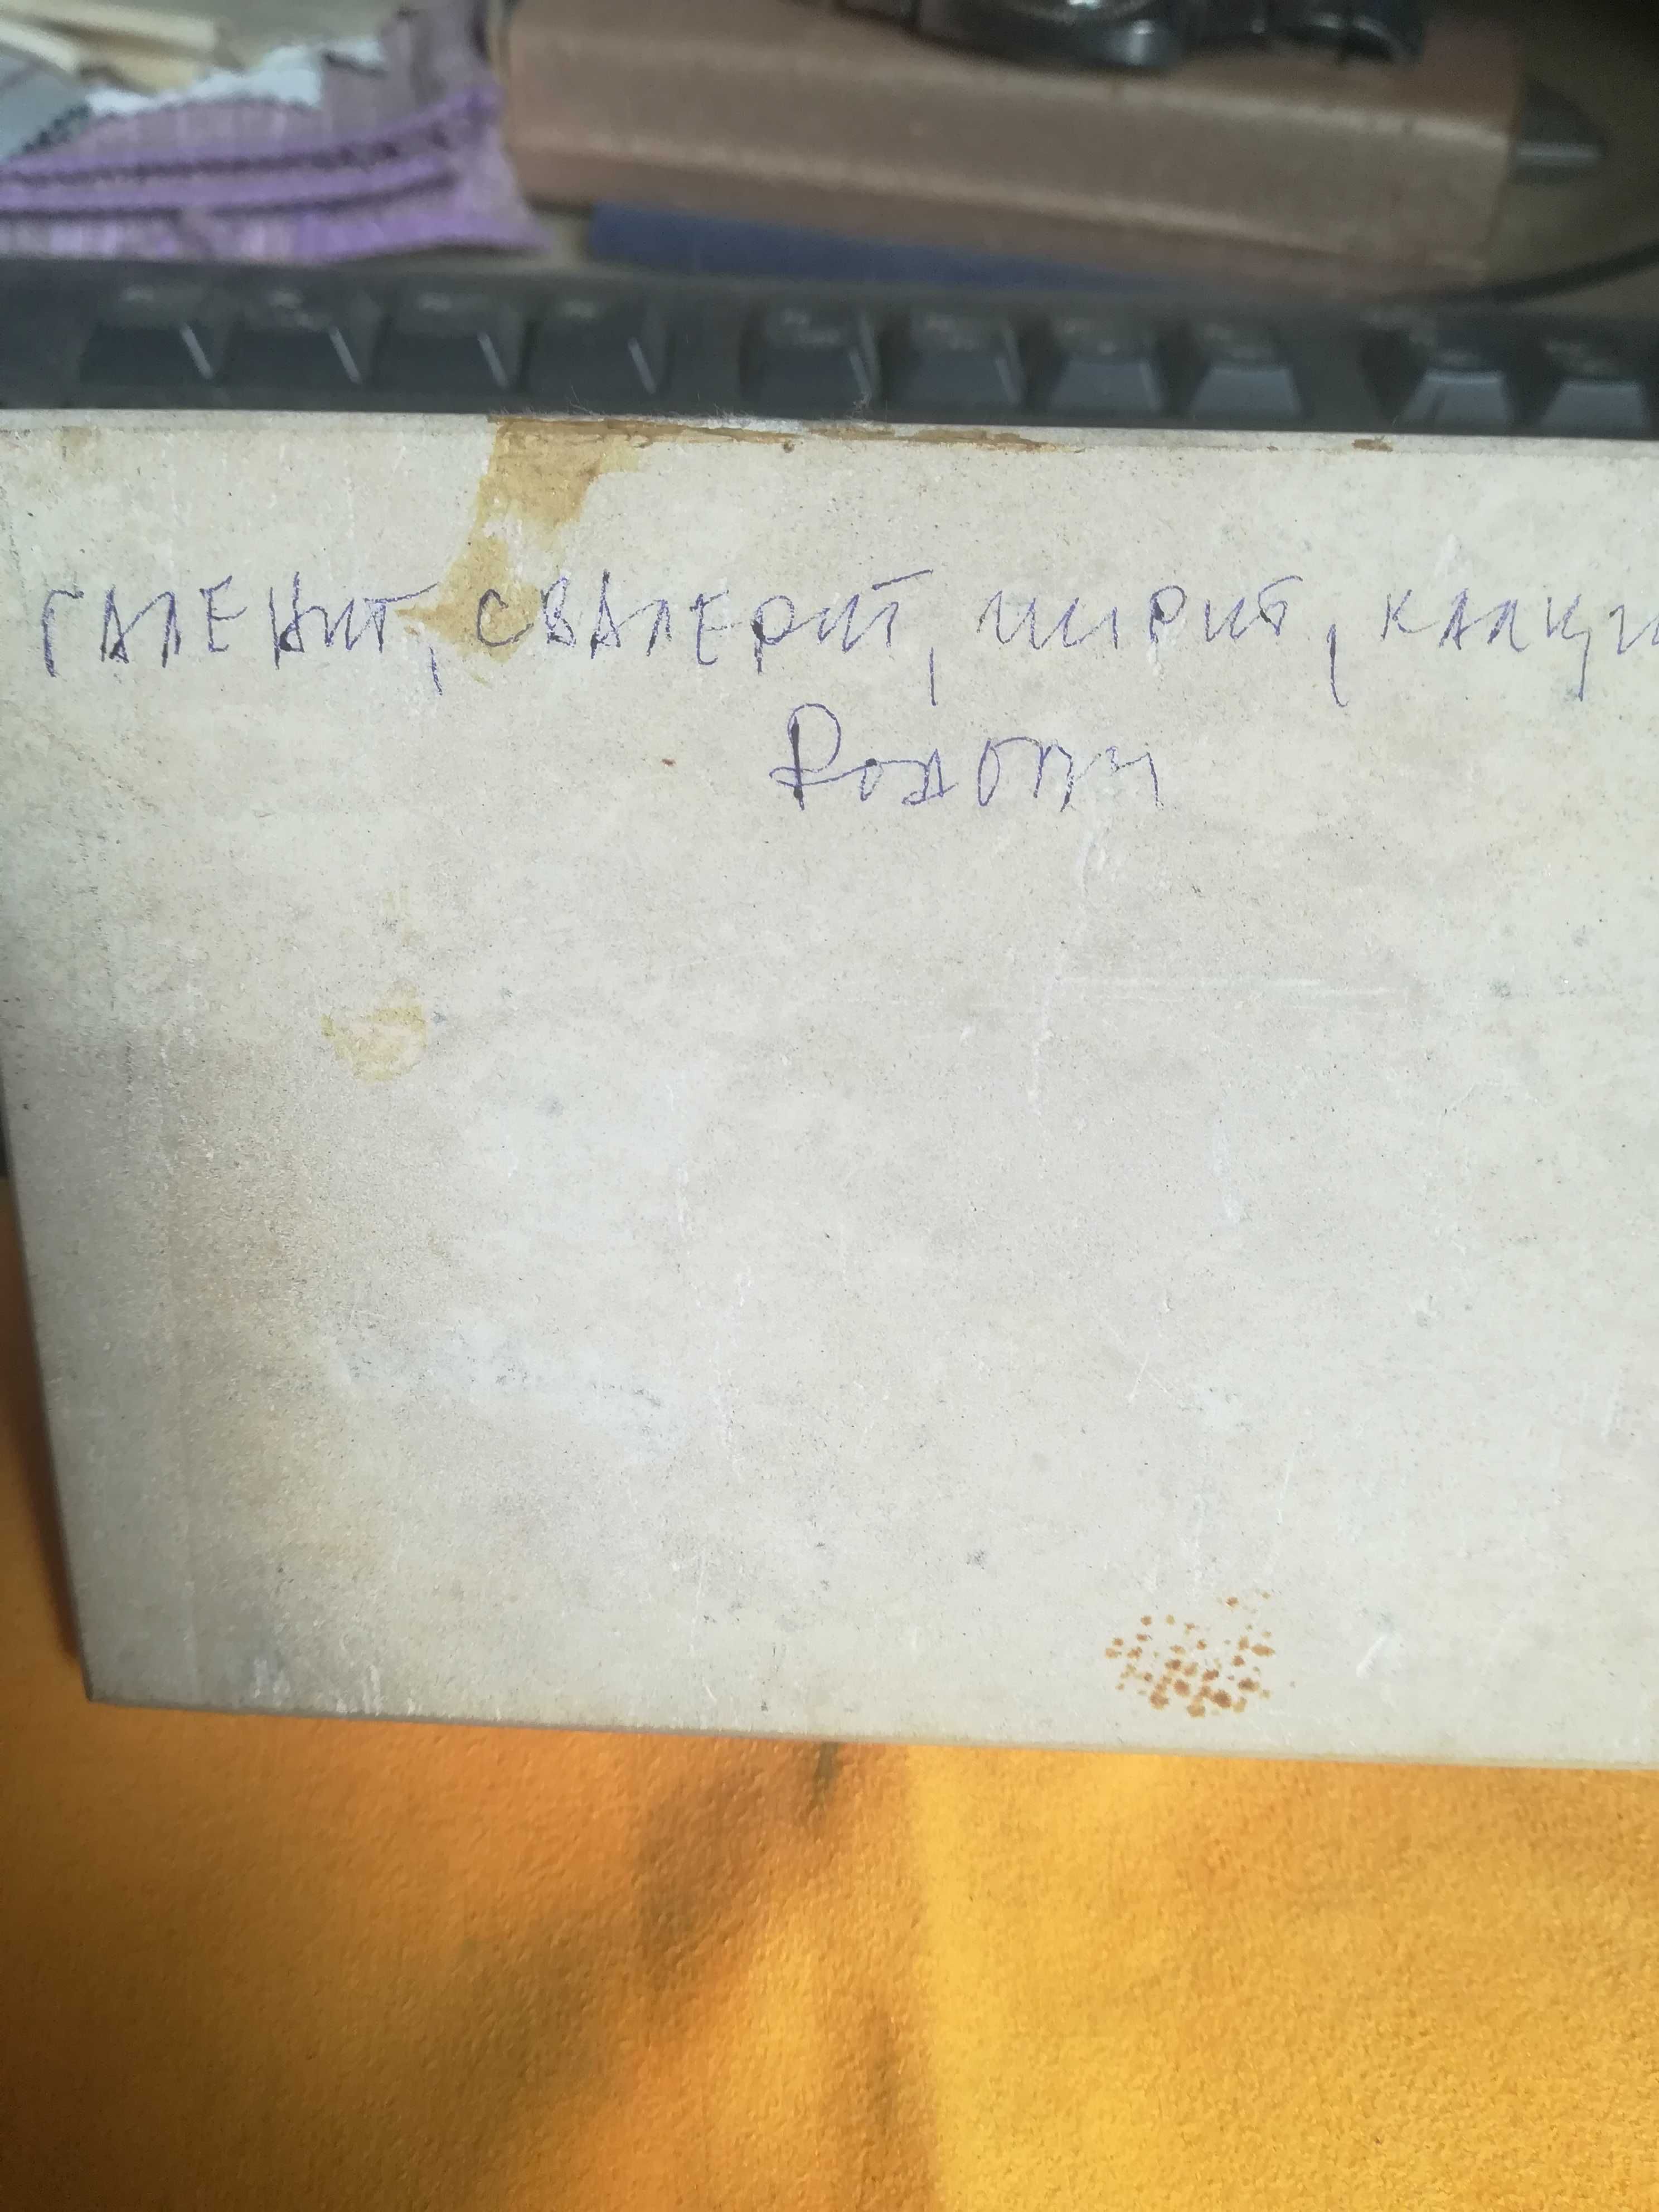 ГАЛЕНИТ, СВАЛЕРИТ, ПИРИТ, КАЛЦИ
Родопи